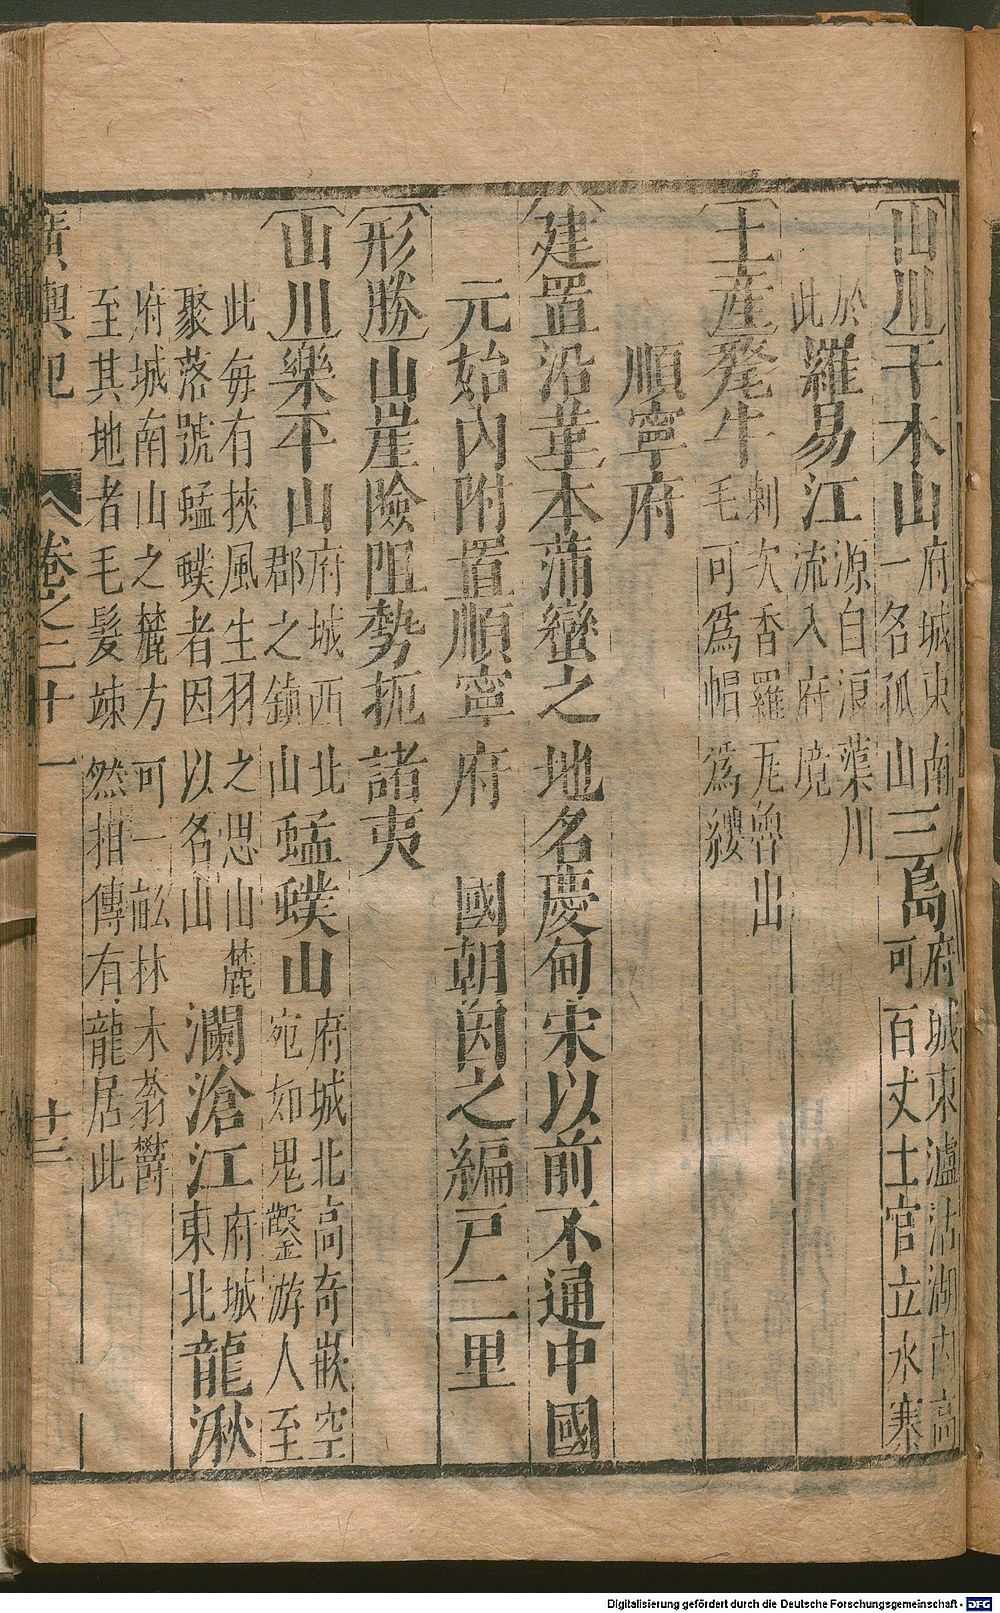 山川干木山府城東南一名孤山三島府城東瀘沽湖內高可百丈土官立水寨
於此羅易江源自浪蕖川流入府境
土產犛牛毛可為帽為纓刺次香羅羌魯出
順寧府
建置沿革本蒲蠻之地名慶甸宋以前不通中國
元始內附置順寧府 國朝因之編戶二里
形勝山崖險阻勢扼諸夷
山川樂平山府城西北郡之鎮山蜢蹼山府城北高奇嵌空宛如鬼鑿游人至
此每有挾風生羽之思山麓聚落號蜢蹼者因以名山瀾滄江府城東北龍湫
府城南山之麓方可一畝林木蓊欝至其地者毛髮竦然相傳有龍居此
廣輿記 卷之二十一 十三
Digitalisierung gefördert durch die Deutsche Forschungsgemeinschaft - DFG